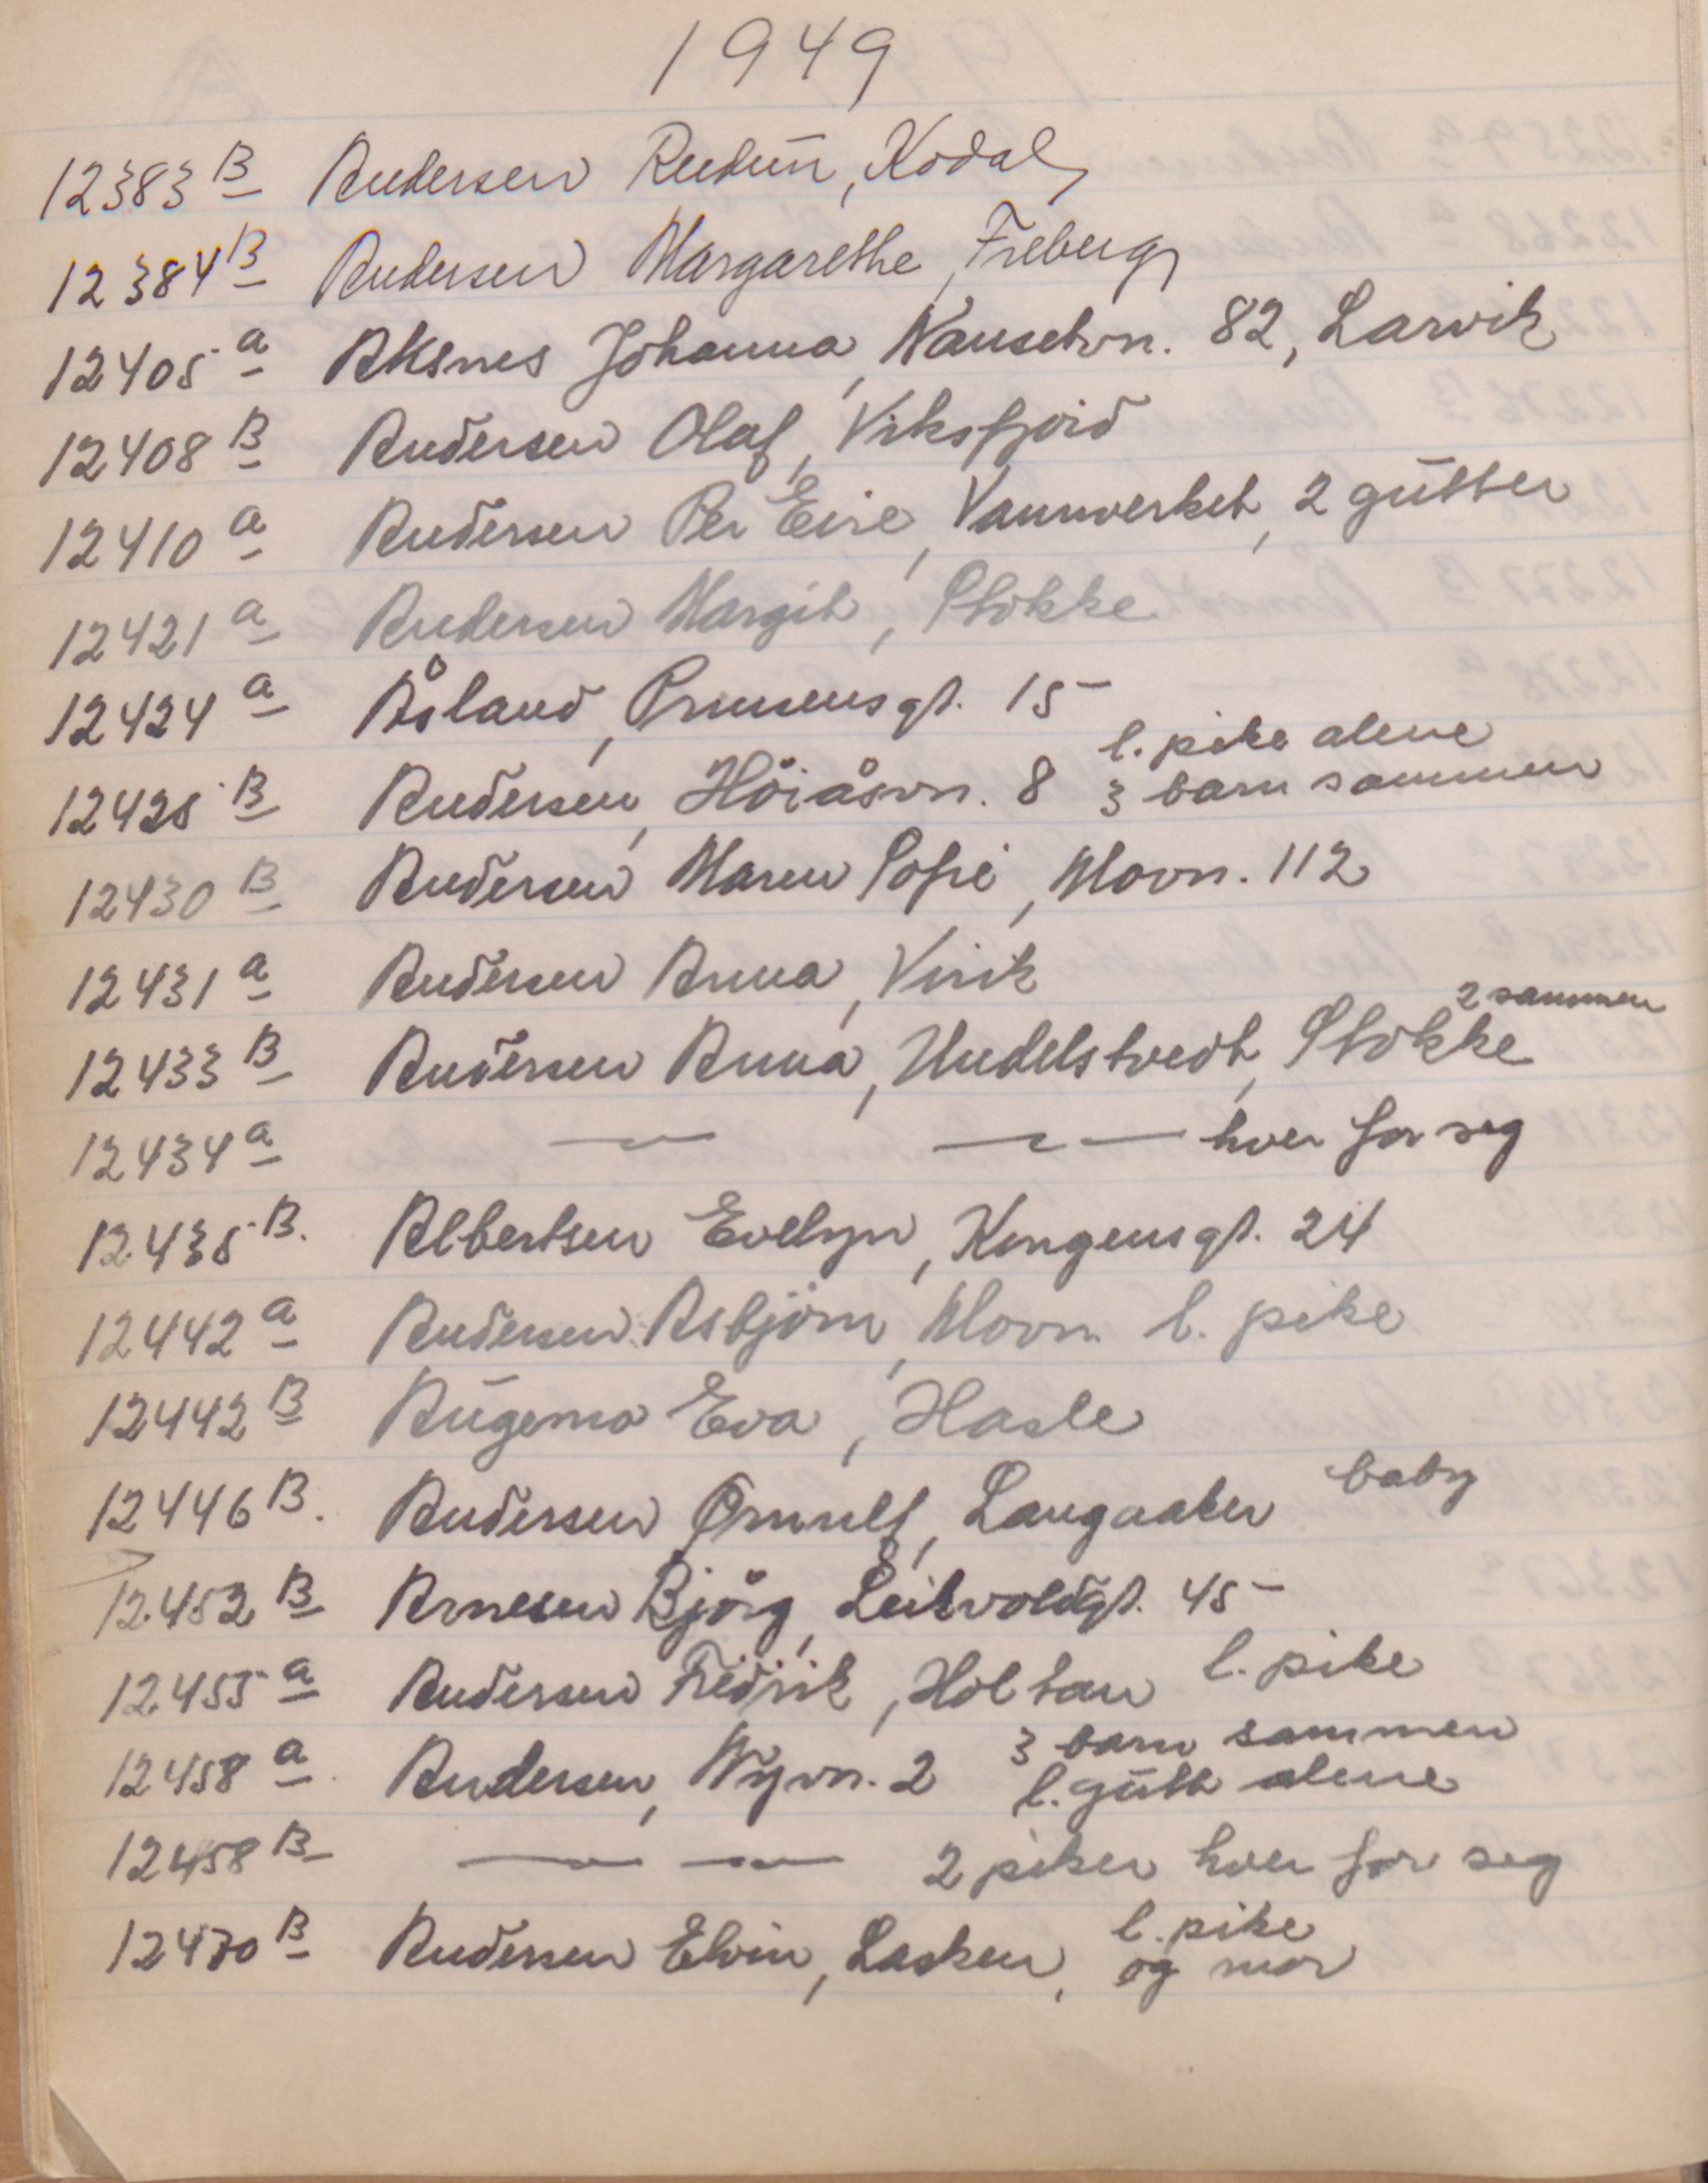 1949
12383 B Andersen Reidun, Kodal
12384 B Andersen Margarethe, Freberg
12405 a Aksnes Johanna, Nansetvn. 82, Larvik
12408 B Andersen Olaf, Viksfjord
12410 a Andersen Per Eire, Vannverket, 2 gutter
12421 a Andersen Margit, Stokke
12424 a Åsland, Prinsensgt. 15
l. pike alene
12425 B Andersen, Höiåsvn. 8 3 barn sammen
12430 B Andersen Maren Sofie, Movn. 112
12431 a Andersen Anna, Virik
2 sammen
12433 B Andersen Anna, Undelstvedt, Stokke
12434 a — — — hver for seg
12435 B. Albertsen Evelyn, Kongensgt. 24
12442 a Andersen Asbjörn, Movn. l. pike
12442 B Augemo Eva, Hasle
12446 B. Andersen Ørnulf, Langaaker baby
12452 B Arnesen Bjørg, 45
12455 a Andersen Fredrik, Holtan l. pike
3 barn sammen
12458 a Andersen, Nyvn. 2 l. gutt alene
12458 B — — 2 piker hver for seg
l. pike
12470 B Andersen Elvin, Lasken, og mor